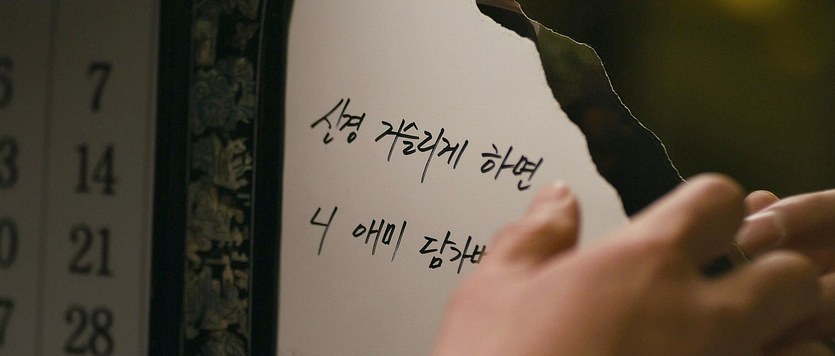 7
14
21
28
신경 거슬리게 하면
니 애미 담가